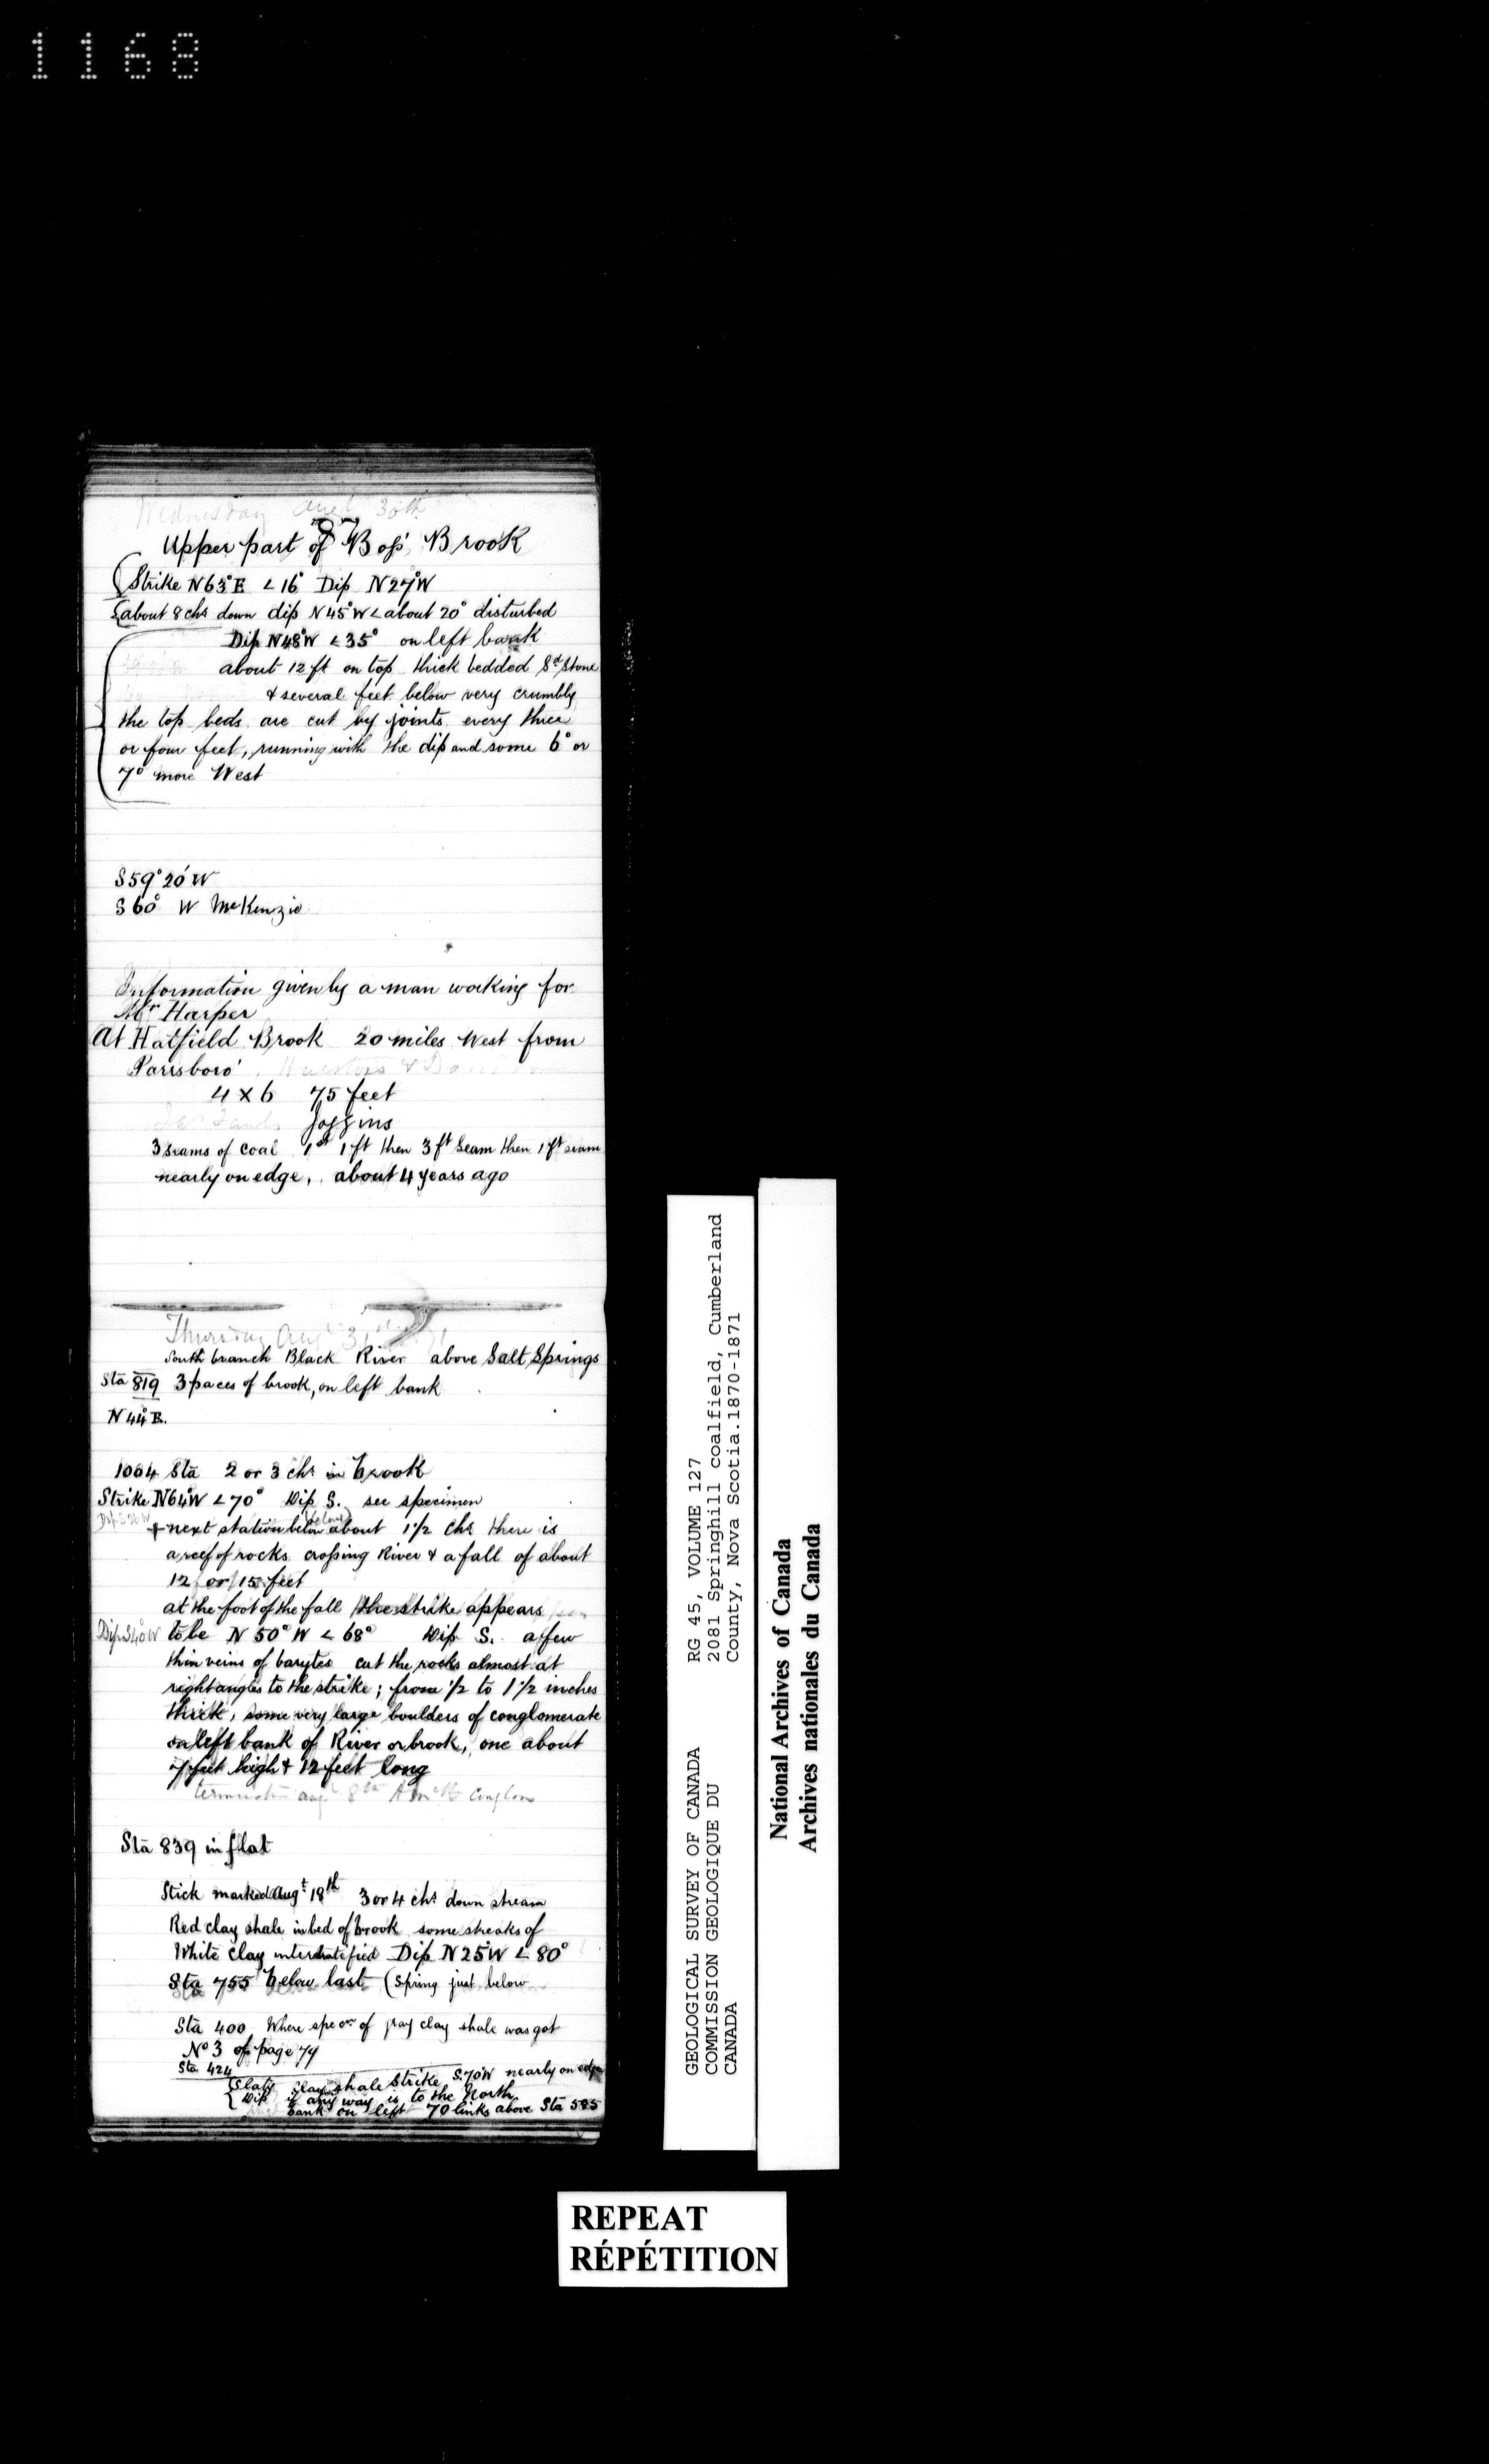 1168
Wednesday Augt 30th
Upper part of Boss' Brook
Strike N63°E ∠ 16° Dip N27°W
about 8 chs down dip N45°W ∠ about 20° disturbed
Dip N48°W ∠ 35° on left bank
about 12 ft on top thick bedded Sd Stone
& several feet below very crumbly
the top beds are cut by joints every three
or four feet, running with the dip and some 6° or
7° more West
S59°20'W
S60° W McKenzie
Information given by a man working for
Mr Harper
At Hatfield Brook 20 miles West from
Parrsboro'
4 x 6 75 feet
Joggins
3 seams of coal 1st 1 ft then 3 ft Seam then 1 ft seam
nearly on edge, about 4 years ago
Thursday Augt 31st 71
South branch Black River above Salt Springs
Sta 819 3 paces of brook, on left bank
N 44° E.
1004 Sta 2 or 3 chs in brook
Strike N64°W ∠ 70° Dip S. see specimen
Dip S 26 W
+ next station below (below) about 1 1/2 chs there is
a reef of rocks crossing River & a fall of about
12 or 15 feet
at the foot of the fall the strike appears
Dip S40°W to be N 50° W ∠ 68° Dip S. a few
thin veins of barytes cut the rocks almost at
right angles to the strike; from 1/2 to 1 1/2 inches
thick, some very large boulders of conglomerate
on left bank of River or brook, one about
7 feet high & 12 feet long
Sta 839 in flat
Stick marked Augt 18th 3 or 4 chs down stream
Red clay shale in bed of brook some streaks of
White clay interstratified Dip N25°W ∠ 80°
Sta 755 below last (Spring just below
Sta 400 Where specn of gray clay shale was got
No 3 of page 79
Sta 424
Slaty Clay shale Strike S.70°W nearly on edge
Dip if any way is to the North
bank on left 70 links above Sta 505
GEOLOGICAL SURVEY OF CANADA RG 45, VOLUME 127
COMMISSION GEOLOGIQUE DU 2081 Springhill coalfield, Cumberland
CANADA County, Nova Scotia.1870-1871
National Archives of Canada
Archives nationales du Canada
REPEAT
RÉPÉTITION